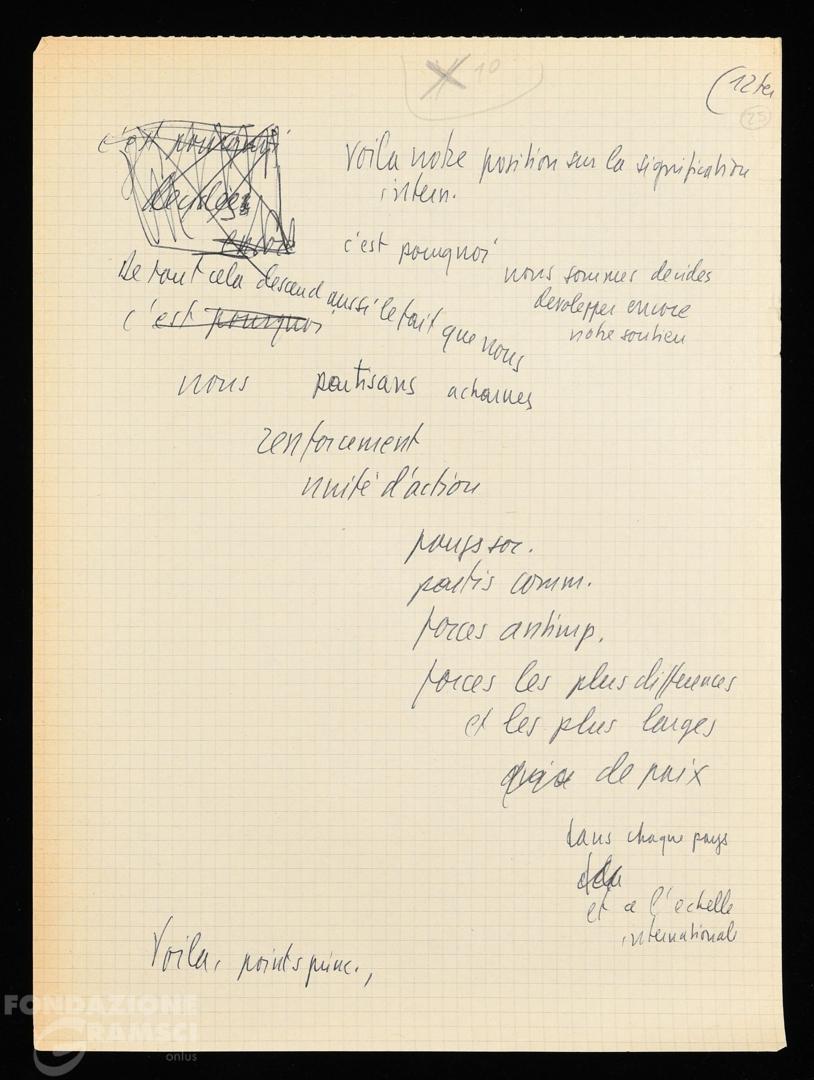 10
(12ter
25
c'est pourquoi
decides
encore
Voila notre position sur la signification
intern.
c'est pourquoi
nous sommes decides
devolepper encore
notre soutien
De tout cela descend aussi le fait que nous
c'est pourquoi
nous partisans acharnes
renforcement
unité d'action
pays soc.
partis comm.
forces antimp.
forces les plus differences
et les plus larges
de paix
dans chaque pays
et a l'echelle
internationale
Voila, points princ.,
FONDAZIONE
GRAMSCI
onlus